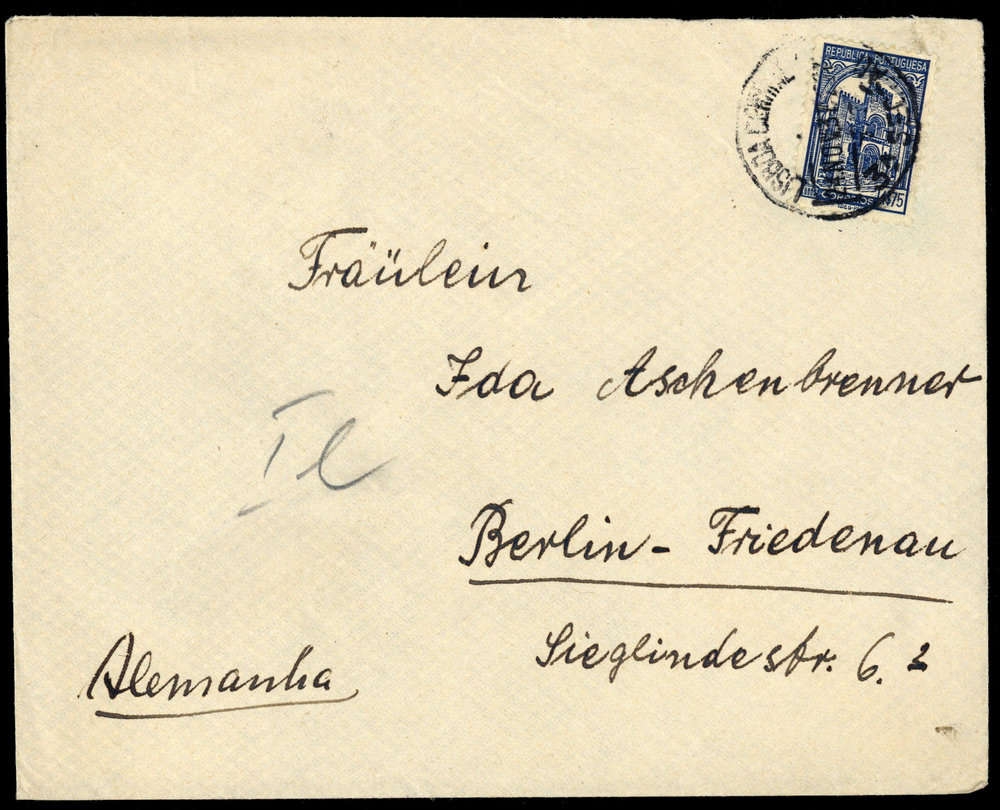 REPUBLICA PORTUGUESA
CORREIOS 1$75
LISBOA CENTRAL
Fräulein
Ida Aschenbrenner
Berlin - Friedenau
Sieglindestr. 6. 2
Alemanha